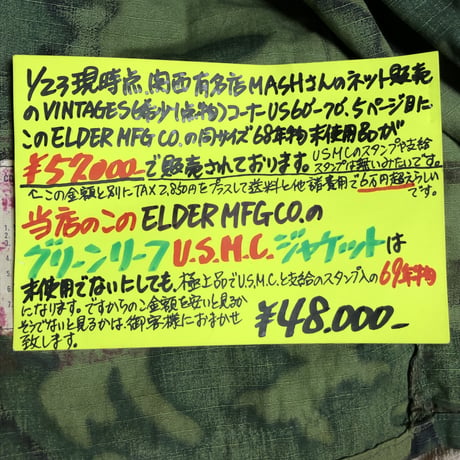 1/23現時点、関西有名店MASHさんのネット販売
のVINTAGES(希少1点物)コーナーUS60'-70'、5ページ目に、
このELDER MFG CO.の同サイズ68年物未使用品が
¥57.000で販売されております。USMCのスタンプや支給
スタンプは無いみたいです。
←この金額と別にTAX2,850円をプラスして送料と他諸費用で6万円超えらしい
です。
当店のこのELDER MFG CO.の
グリーンリーフU.S.M.C.ジャケットは
未使用でないにしても、極上品でU.S.M.C.と支給のスタンプ入の69年物
になります。ですからこの金額を安いと見るか
そうでないと見るかは、御客様におまかせ
致します。
¥48.000-